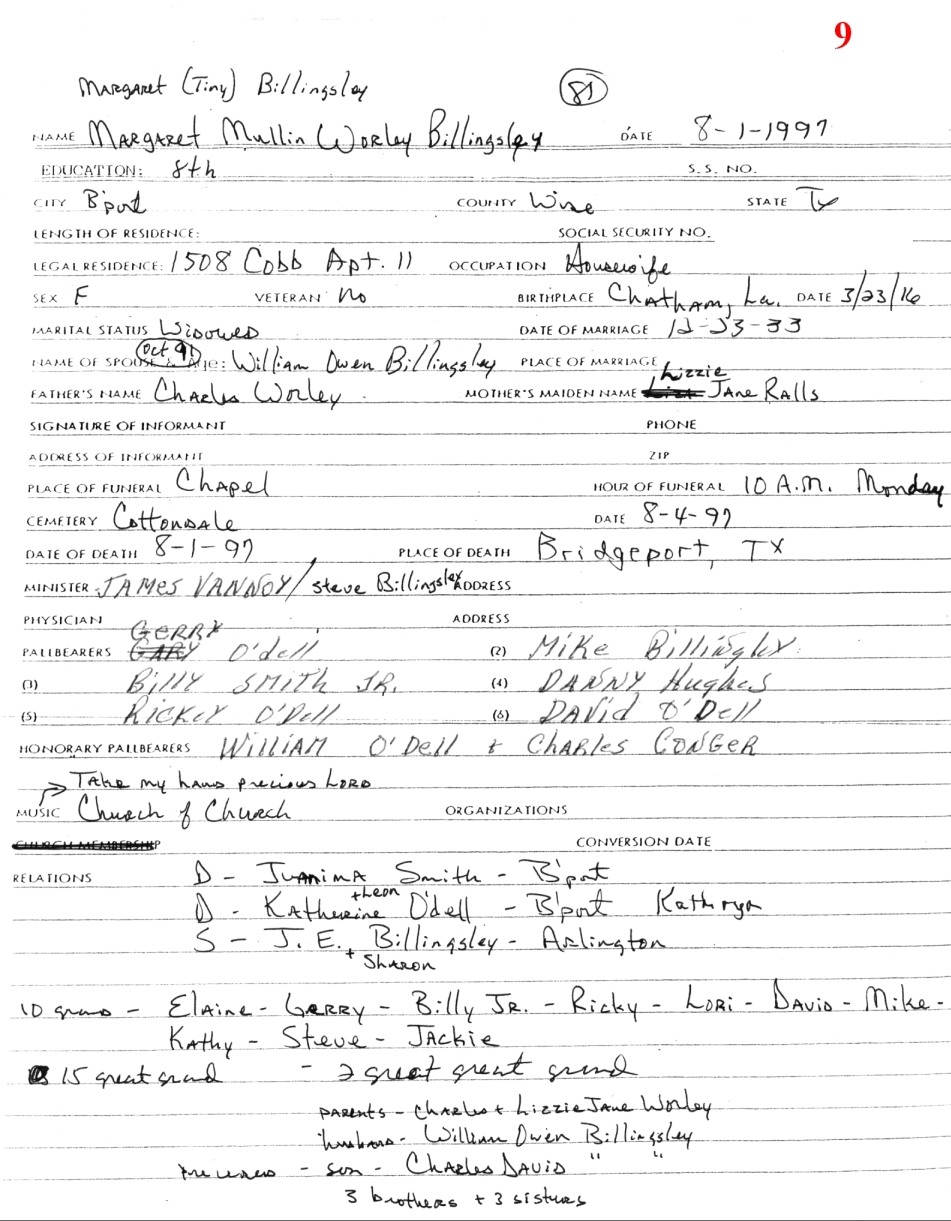 9
Margaret (Tiny) Billingsley 81
NAME Margaret Mullin Worley Billingsley DATE 8-1-1997
EDUCATION: 8th S.S. NO.
CITY B'port COUNTY Wise STATE Tx
LENGTH OF RESIDENCE: SOCIAL SECURITY NO.
LEGAL RESIDENCE: 1508 Cobb Apt. 11 OCCUPATION Housewife
SEX F VETERAN No BIRTHPLACE Chatham, La. DATE 3/23/16
MARITAL STATUS Widowed DATE OF MARRIAGE 12-23-33
Oct 91
NAME OF SPOUSE & AGE: William Owen Billingsley PLACE OF MARRIAGE
Lizzie
FATHER'S NAME Charles Worley MOTHER'S MAIDEN NAME Jane Ralls
SIGNATURE OF INFORMANT PHONE
ADDRESS OF INFORMANT ZIP
PLACE OF FUNERAL Chapel HOUR OF FUNERAL 10 A.M. Monday
CEMETERY Cottondale DATE 8-4-97
DATE OF DEATH 8-1-97 PLACE OF DEATH Bridgeport, TX
MINISTER JAMES VANNOY/ Steve Billingsley ADDRESS
PHYSICIAN ADDRESS
GERRY
PALLBEARERS GARY O'dell (2) MIKE Billingley
(3) Billy SMITH JR. (4) DANNY Hughes
(5) RICKEY O'Dell (6) DAVID O'Dell
HONORARY PALLBEARERS WILLIAM O'Dell & CHARLES CONGER
Take my hand precious Lord
MUSIC Church of Church ORGANIZATIONS
CHURCH MEMBERSHIP CONVERSION DATE
RELATIONS D - Juanima Smith - B'port
+ Leon
D - Katherine O'dell - B'port Kathryn
S - J. E. Billingsley - Arlington
+ Sharon
10 grand - Elaine - Gerry - Billy Jr. - Ricky - Lori - David - Mike -
Kathy - Steve - Jackie
15 great grand - 2 great great grand
parents - Charles + Lizzie Jane Worley
husband - William Owen Billingsley
preceded - son - Charles David " "
3 brothers + 3 sisters